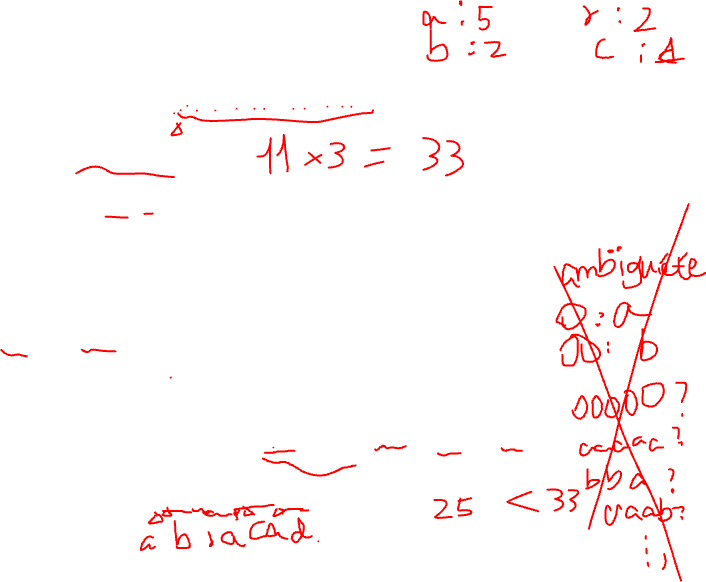 a : 5 r : 2
b : 2 c : 1
11 × 3 = 33
ambiguïté
0 : a
00 : b
00000 ?
aaaaa ?
bba ?
25 < 33
aaab ?